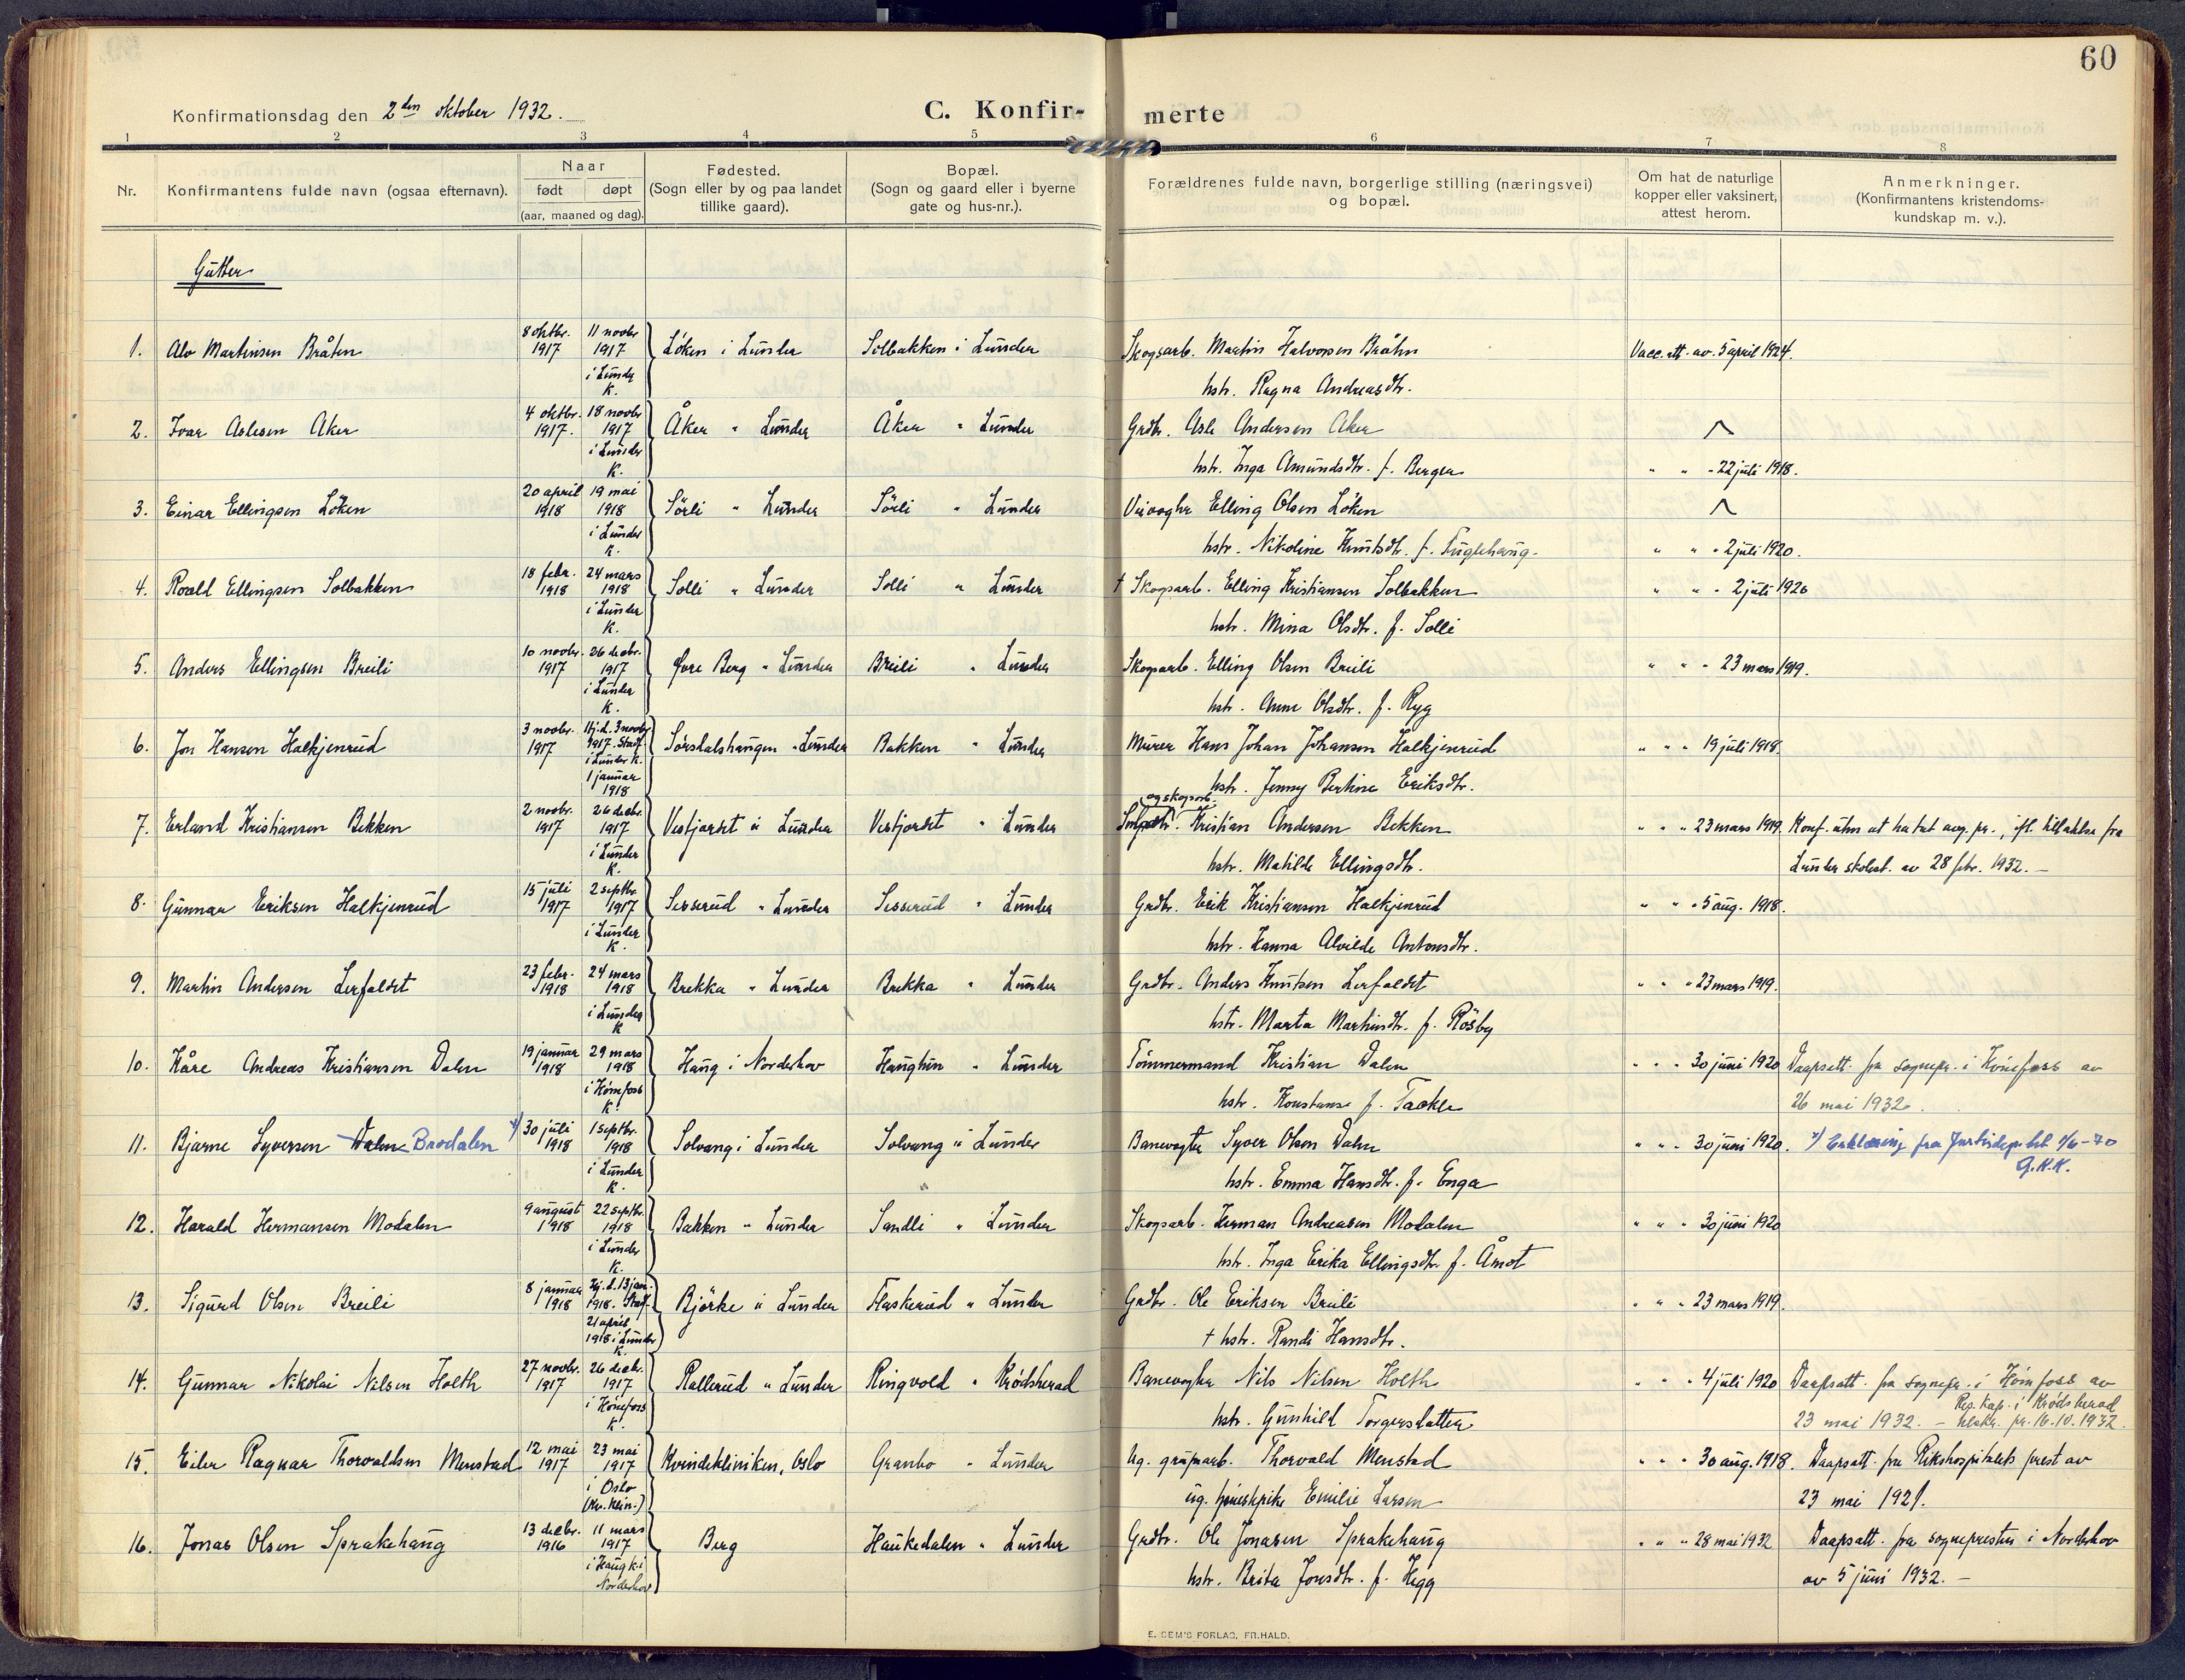 60
Konfirmationsdag den 2den oktober 1932.
C. Konfir- merte
1 2 3 4 5 6 7 8
Nr.
Konfirmantens fulde navn (ogsaa efternavn).
Naar
født døpt
(aar, maaned og dag).
Fødested.
(Sogn eller by og paa landet
tillike gaard).
Bopæl.
(Sogn og gaard eller i byerne
gate og hus-nr.).
Forældrenes fulde navn, borgerlige stilling (næringsvei)
og bopæl.
Om hat de naturlige
kopper eller vaksinert,
attest herom.
Anmerkninger.
(Konfirmantens kristendoms-
kundskap m. v.).
Gutter
1. Alv Martinsen Bråten
8 oktbr. 1917
11 novbr 1917
i Lunder
K.
Løken i Lunder
Solbakken i Lunder
Skogsarb. Martin Halvorsen Bråten
hstr. Ragna Andreasdtr.
Vacc. att. av 5 april 1924.
2. Ivar Aslesen Aker
4 oktbr. 1917.
18 novbr 1917
i Lunder
K.
Åker " Lunder
Åker " Lunder
Grdbr. Asle Andersen Aker
hstr. Inga Amundsdtr. f. Berger
" " " 22 juli 1918.
3. Einar Ellingsen Løken
20 april 1918
19 mai 1918
i Lunder
K.
Sörli " Lunder
Sörli " Lunder
Veivogter Elling Olsen Løken
hstr. Nikoline Knutsdtr. f. Fuglehaug.
" " " 2 juli 1920.
4. Roald Ellingsen Solbakken
18 febr. 1918
24 mars 1918
i Lunder
K.
Solli " Lunder
Solli " Lunder
† Skogsarb. Elling Kristiansen Solbakken
hstr. Mina Olsdtr. f. Solli
" " " 2 juli 1926
5. Anders Ellingsen Breili
10 novbr. 1917
26 decbr. 1917
i Lunder
K.
Øvre Berg " Lunder
Breili " Lunder
Skogsarb. Elling Olsen Breili
hstr. Anne Olsdtr. f. Ryg
" " " 23 mars 1919.
6. Jon Hansen Halkjenrud
3 novbr. 1917
Hj.d. 3 novbr
1917. Stadf.
i Lunder K.
1 januar
1918
Sørsdalshaugen " Lunder
Bakken " Lunder
Murer Hans Johan Johansen Halkjenrud
hstr. Jenny Bertine Eriksdtr.
" " " 19 juli 1918.
7. Erland Kristiansen Bekken
2 novbr. 1917
26 decbr. 1917
i Lunder
K.
Vesfjordet i Lunder
Vesfjordet " Lunder
og skogsarb.
Kristian Andersen Bekken
hstr. Matilde Ellingsdtr.
" " " 23 mars 1919.
Konf. uten at ha tat avg. pr., ifl. tillatelse fra
Lunder skolest. av 28 febr. 1932. –
8. Gunnar Eriksen Halkjenrud
15 juli 1917
2 septbr. 1917
i Lunder
K.
Sesserud " Lunder
Sesserud " Lunder
Grdbr. Erik Kristiansen Halkjenrud
hstr. Hanna Alvilde Antonsdtr.
" " " 5 aug. 1918.
9. Martin Andersen Lerfaldet
23 febr. 1918
24 mars 1918
i Lunder
K
Brekka " Lunder
Brekka " Lunder
Grdbr. Anders Knutsen Lerfaldet
hstr. Marta Martinsdtr. f. Rösby
" " " 23 mars 1919.
10. Kåre Andreas Kristiansen Dalen
19 januar 1918
29 mars 1918
i Hönefoss
K.
Haug i Norderhov
Haugtun " Lunder
Tömmermand Kristian Dalen
hstr. Konstanse f. Tackle
" " " 30 juni 1920
Daapsatt. fra sognepr. i Hönefoss av
26 mai 1932.
11. Bjarne Syversen Dalen Brodalen x)
30 juli 1918
1 septbr. 1918
i Lunder
K.
Solvang i Lunder
Solvang i Lunder
Banevogter Syver Olsen Dalen
hstr. Emma Hansdtr. f. Enga
" " " 30 juni 1920.
x) Erklæring fra Justisdep. 1/6-70
G.K.K.
12. Harald Hermansen Modalen
9 august 1918
22 septbr. 1918
i Lunder
K.
Bakken " Lunder
Sandli " Lunder
Skogsarb. Herman Andreasen Modalen
hstr. Inga Erika Ellingsdtr. f. Åmot
" " " 30 juni 1920
13. Sigurd Olsen Breili
8 januar 1918
Hj.d. 13 jan.
1918. Stadf.
21 april
1918 i Lunder
K.
Björke i Lunder
Flaskerud " Lunder
Grdbr. Ole Eriksen Breili
† hstr. Randi Hansdtr.
" " " 23 mars 1919.
14. Gunnar Nikolai Nilsen Holth
27 novbr. 1917
26 decbr. 1917
i Hönefoss
K.
Rallerud " Lunder
Ringvold " Krödsherad
Banevogter Nils Nilsen Holth
hstr. Gunhild Torgersdatter
" " " 4 juli 1920
Daapsatt. fra sognepr. i Hönefoss av
23 mai 1932. – Res. kap. i Krødsherad
tilskr. pr. 16.10.1932.
15. Eiler Ragnar Thorvaldsen Menstad
12 mai 1917
23 mai 1917
i Oslo
(Kv. klin.)
Kvindekliniken, Oslo
Granbo " Lunder
Ug. grubearb. Thorvald Menstad
ug. tjenestepike Emilie Larsen
" " " 30 aug. 1918.
Daapsatt. fra Rikshospitalets prest av
23 mai 1921.
16. Jonas Olsen Sprakehaug
13 decbr. 1916
11 mars 1917
i Haug k. i
Norderhov
Berg
Haukedalen " Lunder
Grdbr. Ole Jonasen Sprakehaug
hstr. Brita Jonsdtr. f. Hegg
" " " 28 mai 1932
Daapsatt. fra sognepresten i Norderhov
av 5 juni 1932. –
E. SEM'S FORLAG, FR.HALD.